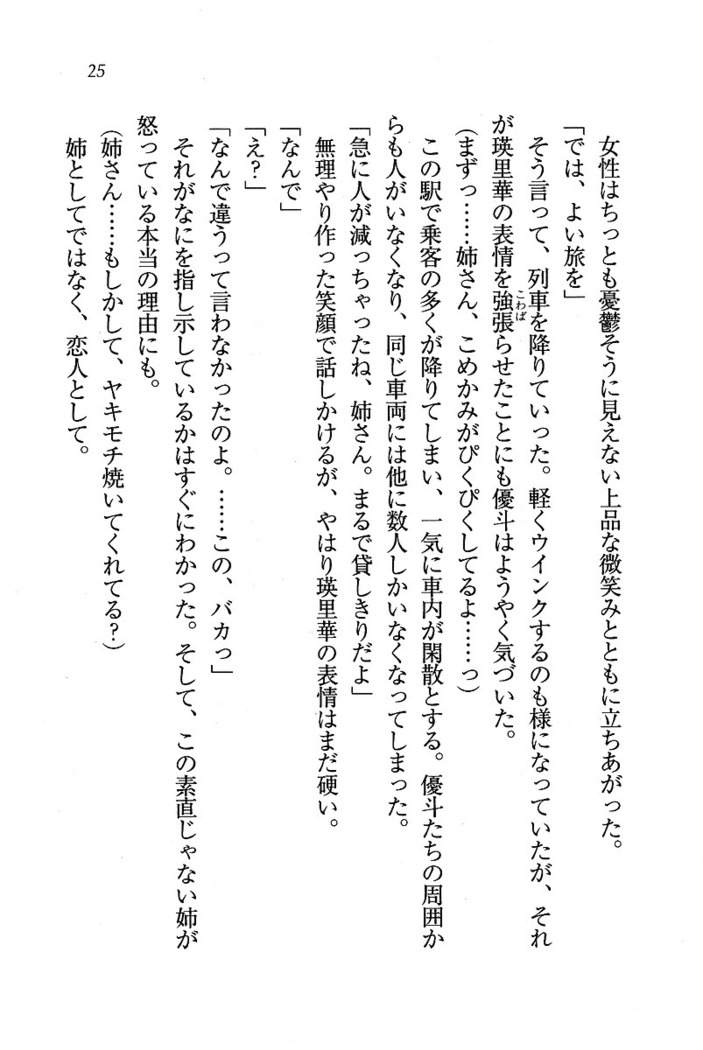 25
女性はちっとも憂鬱そうに見えない上品な微笑みとともに立ちあがった。
「では、よい旅を」
そう言って、列車を降りていった。軽くウインクするのも様になっていたが、それ
が瑛里華の表情を強張らせたことにも優斗はようやく気づいた。
こわば
(まずっ……姉さん、こめかみがぴくぴくしてるよ……っ)
この駅で乗客の多くが降りてしまい、一気に車内が閑散とする。優斗たちの周囲か
らも人がいなくなり、同じ車両には他に数人しかいなくなってしまった。
「急に人が減っちゃったね、姉さん。まるで貸しきりだよ」
無理やり作った笑顔で話しかけるが、やはり瑛里華の表情はまだ硬い。
「なんで」
「え?」
「なんで違うって言わなかったのよ。……この、バカっ」
それがなにを指し示しているかはすぐにわかった。そして、この素直じゃない姉が
怒っている本当の理由にも。
(姉さん……もしかして、ヤキモチ焼いてくれてる?)
姉としてではなく、恋人として。